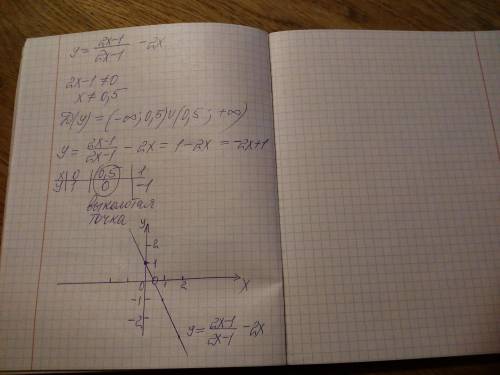 y = \frac{2x-1}{2x-1} - 2x
2x-1≠0
x≠0,5
D(y) = (-∞; 0,5)∪(0,5; +∞)
y = \frac{2x-1}{2x-1} - 2x = 1-2x = -2x+1
x | 0 | 0,5 | 1
y | 1 | 0 | -1
выколотая
точка
y
2
1
0 1 2 x
-1
-2
y = \frac{2x-1}{2x-1} - 2x